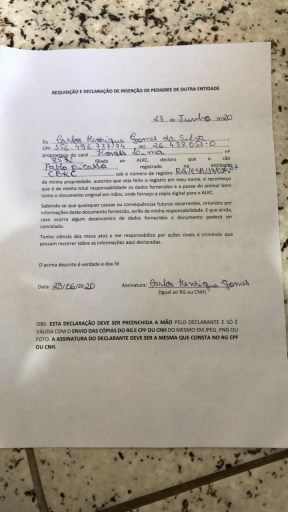 REQUISIÇÃO E DECLARAÇÃO DE INSERÇÃO DE PEDIGREE DE OUTRA ENTIDADE
23 de Junho 2020
Eu Carlos Henrique Gomes da Silva,
CPF RG 26.438.051-0
proprietário do canil nº
filiado ao ALKC, declaro que o cão
Pablo Picasso registrado na entidade
CBKC, sob o número de registro
de minha propriedade, autorizo que seja feito o registro em meu nome, e reconheço
que é de minha total responsabilidade os dados fornecidos e a posse do animal bem
como o documento original em mãos, onde forneço a cópia digital para a ALKC.
Sabendo-se que quaisquer causas ou consequências futuras recorrentes, oriundas por
informações deste documento fornecido, serão de minha responsabilidade. E que ainda,
caso ocorra algum desencontro de dados fornecidos o documento poderá ser
cancelado.
Tenho ciência dos meus atos e me responsabilizo por ações cíveis e criminais que
possam recorrer sobre as informações aqui declaradas.
O acima descrito é verdade e dou fé
Data: 23/06/2020 Assinatura: Carlos Henrique Gomes
(Igual ao RG ou CNH)
OBS: ESTA DECLARAÇÃO DEVE SER PREENCHIDA A MÃO PELO DECLARANTE E SÓ É
VÁLIDA COM O ENVIO DAS CÓPIAS DO RG E CPF OU CNH DO MESMO EM JPEG, PNG OU
FOTO. A ASSINATURA DO DECLARANTE DEVE SER A MESMA QUE CONSTA NO RG CPF
OU CNH.